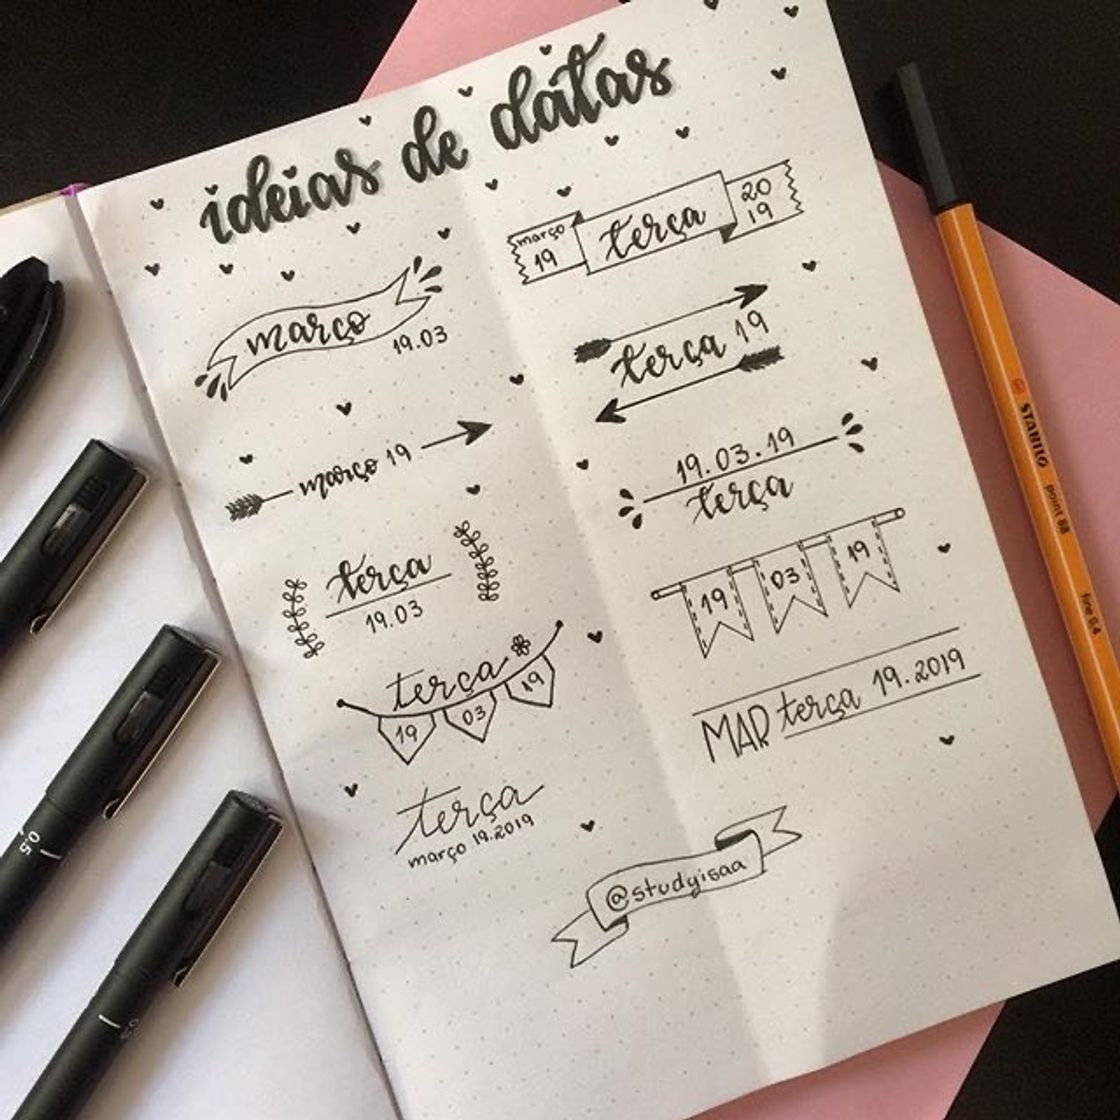 ideias de datas
março
19.03
março 19
terça
19.03
terça
19
03
19
terça
março 19.2019
março
19
terça
20
19
terça 19
19.03.19
terça
19
03
19
MAR terça 19.2019
@studyisaa
STABILO point 88 fine 0.4
0.5